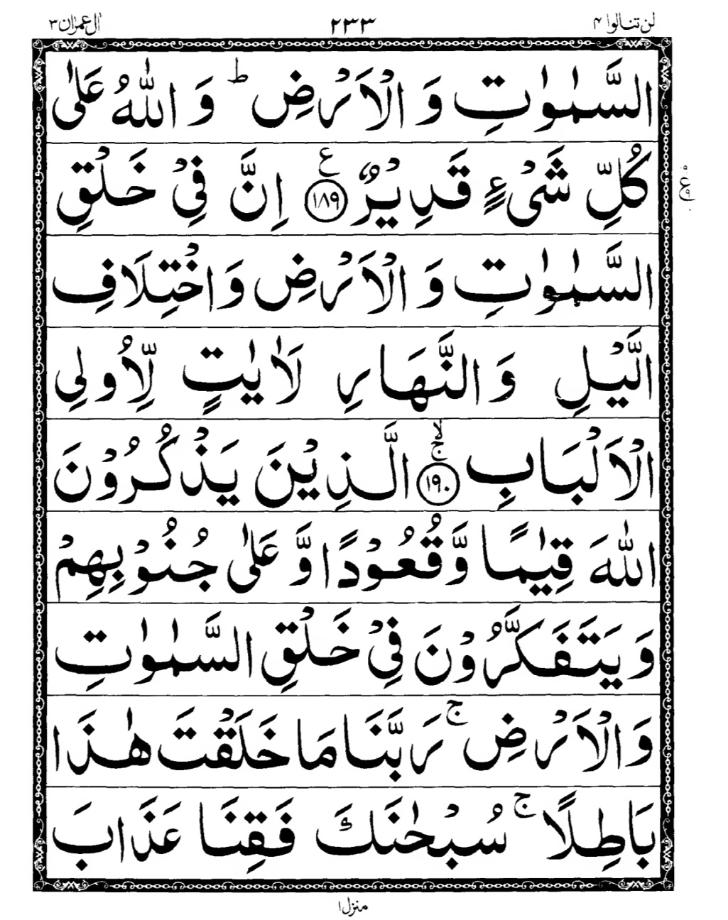 لن تنالوا ۴ ۲۳۳ اٰل عمرٰن ۳
السَّمٰوٰتِ وَ الْاَرْضِ ؕ وَ اللّٰهُ عَلٰى
كُلِّ شَیْءٍ قَدِیْرٌ ﴿۱۸۹﴾ ع اِنَّ فِیْ خَلْقِ
السَّمٰوٰتِ وَ الْاَرْضِ وَاخْتِلَافِ
الَّیْلِ وَالنَّهَارِ لَاٰیٰتٍ لِّاُولِی
الْاَلْبَابِ ﴿۱۹۰﴾ ۚۙ الَّذِیْنَ یَذْكُرُوْنَ
اللّٰهَ قِیٰمًا وَّقُعُوْدًا وَّ عَلٰى جُنُوْبِهِمْ
وَیَتَفَكَّرُوْنَ فِیْ خَلْقِ السَّمٰوٰتِ
وَالْاَرْضِ ۚ رَبَّنَا مَا خَلَقْتَ هٰذَا
بَاطِلًا ۚ سُبْحٰنَكَ فَقِنَا عَذَابَ
منزل ۱